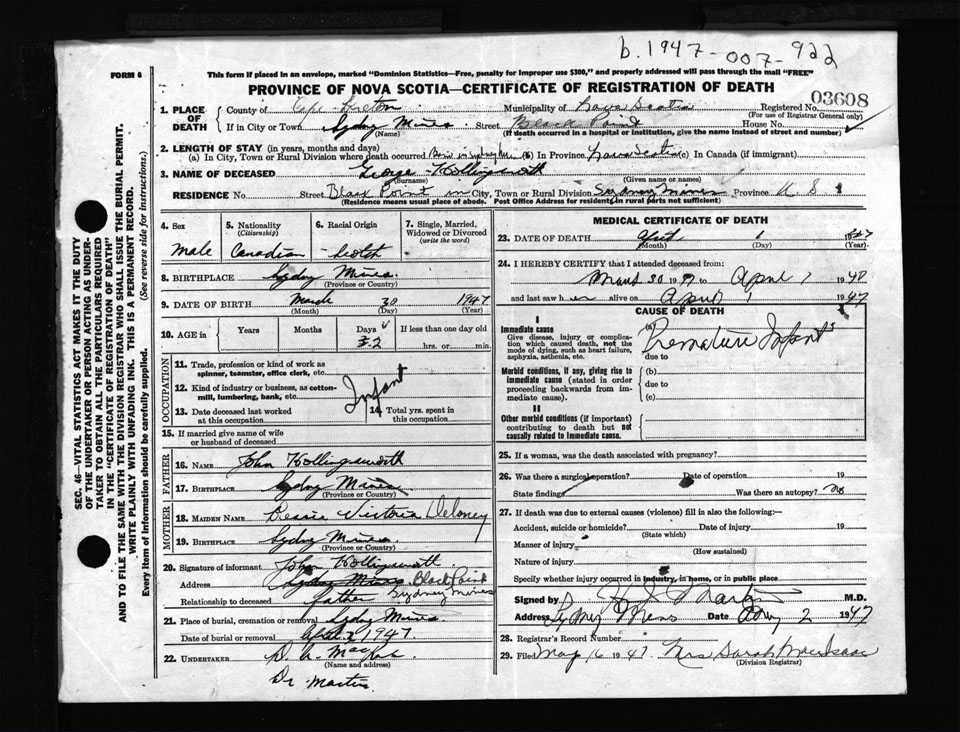 b. 1947-007-922
FORM 6
This form if placed in an envelope, marked "Dominion Statistics—Free, penalty for improper use $300," and properly addressed will pass through the mail "FREE"
PROVINCE OF NOVA SCOTIA—CERTIFICATE OF REGISTRATION OF DEATH
03608
1. PLACE OF DEATH
County of Cape Breton Municipality of Nova Scotia Registered No.
(For use of Registrar General only)
If in City or Town Sydney Mines Street Black Point House No.
(Name) (If death occurred in a hospital or institution, give the name instead of street and number)
2. LENGTH OF STAY (in years, months and days)
(a) In City, Town or Rural Division where death occurred Born in Sydney Mines (b) In Province Nova Scotia (c) In Canada (if immigrant)
3. NAME OF DECEASED George Hollingsworth
(Surname) (Given name or names)
RESIDENCE No. Street Black Point in City, Town or Rural Division Sydney Mines Province N S
(Residence means usual place of abode. Post Office Address for residents in rural parts not sufficient)
4. Sex
Male
5. Nationality
(Citizenship)
Canadian
6. Racial Origin
Scotch
7. Single, Married, Widowed or Divorced
(write the word)
8. BIRTHPLACE Sydney Mines
(Province or Country)
9. DATE OF BIRTH March 30 1947
(Month) (Day) (Year)
10. AGE in Years Months Days If less than one day old
2 hrs. or min.
OCCUPATION
11. Trade, profession or kind of work as
spinner, teamster, office clerk, etc.
Infant
12. Kind of industry or business, as cotton-
mill, lumbering, bank, etc.
13. Date deceased last worked
at this occupation
14. Total yrs. spent in
this occupation
15. If married give name of wife
or husband of deceased
FATHER
16. NAME John Hollingsworth
17. BIRTHPLACE Sydney Mines
(Province or Country)
MOTHER
18. MAIDEN NAME Bessie Victoria Deloney
19. BIRTHPLACE Sydney Mines
(Province or Country)
20. Signature of informant John Hollingsworth
Address Sydney Mines Black Point
Sydney Mines
Relationship to deceased father
21. Place of burial, cremation or removal Sydney Mines
Date of burial or removal April 2 1947
22. UNDERTAKER
(Name and address)
Dr. Martin
MEDICAL CERTIFICATE OF DEATH
23. DATE OF DEATH April 1 1947
(Month) (Day) (Year)
24. I HEREBY CERTIFY that I attended deceased from:
30 to April 1
and last saw h alive on April 1 1947
CAUSE OF DEATH
I
Immediate cause
Give disease, injury or complica-
tion which caused death, not the
mode of dying, such as heart failure,
asphyxia, asthenia, etc.
(a) Premature Infant
due to
Morbid conditions, if any, giving rise to
immediate cause (stated in order
proceeding backwards from im-
mediate cause).
(b)
due to
(c)
II
Other morbid conditions (if important)
contributing to death but not
causally related to immediate cause.
25. If a woman, was the death associated with pregnancy?
26. Was there a surgical operation? Date of operation 19
State findings Was there an autopsy? no
27. If death was due to external causes (violence) fill in also the following:—
Accident, suicide or homicide? Date of injury 19
(State which)
Manner of injury
(How sustained)
Nature of injury
Specify whether injury occurred in industry, in home, or in public place
Signed by Martin M.D.
Address Syd Mines Date 2 1947
28. Registrar's Record Number
29. Filed May 16 1947 Mrs Sarah MacIsaac
(Division Registrar)
SEC. 46—VITAL STATISTICS ACT MAKES IT THE DUTY
OF THE UNDERTAKER OR PERSON ACTING AS UNDER-
TAKER TO OBTAIN ALL THE PARTICULARS REQUIRED
IN THE "CERTIFICATE OF REGISTRATION OF DEATH"
AND TO FILE THE SAME WITH THE DIVISION REGISTRAR WHO SHALL ISSUE THE BURIAL PERMIT.
WRITE PLAINLY WITH UNFADING INK. THIS IS A PERMANENT RECORD.
Every item of Information should be carefully supplied. (See reverse side for instructions.)